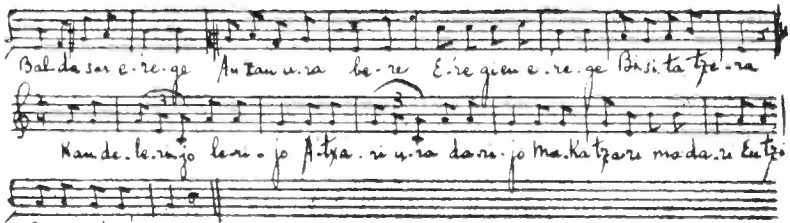 Baldasar e-re-ge Auzan u-ra be-re E-re gien e-re-ge Bisi-ta-tze-ra
Kan-de-le-ri-jo le-ri-jo A-txa-ri u-ra da-ri-jo Ma-Katza-ri ma-da-ri Eutzi